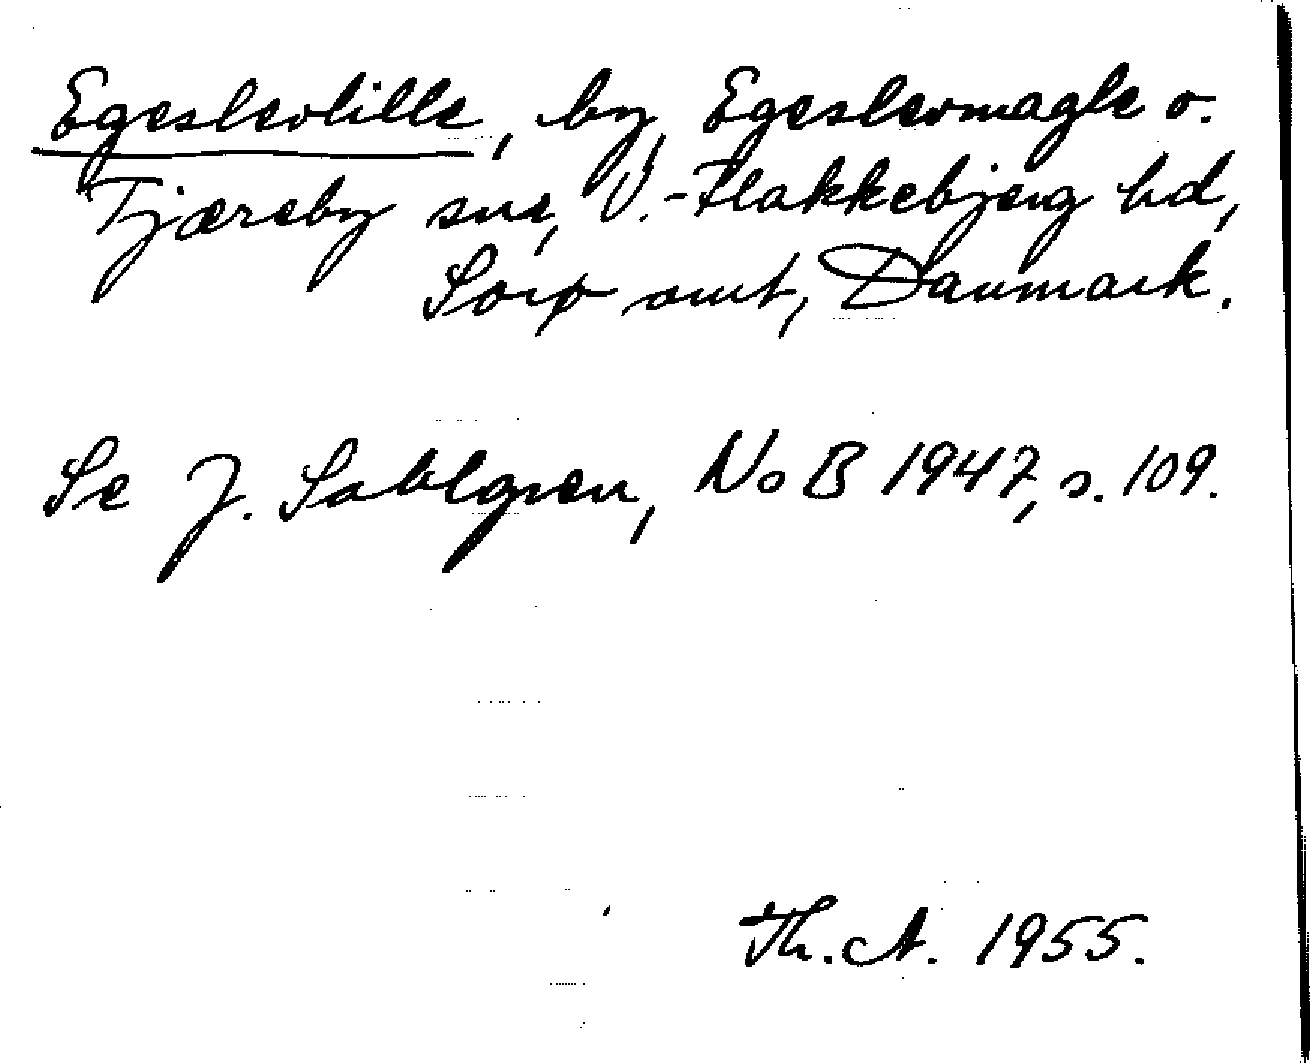 Egeslevlille, by, Egeslevmagle o.
Tjæreby snr, V.-Flakkebjerg hd,
Sorø amt, Danmark.
Se J. Sahlgren, NoB 1947, s. 109.
Th. A. 1955.